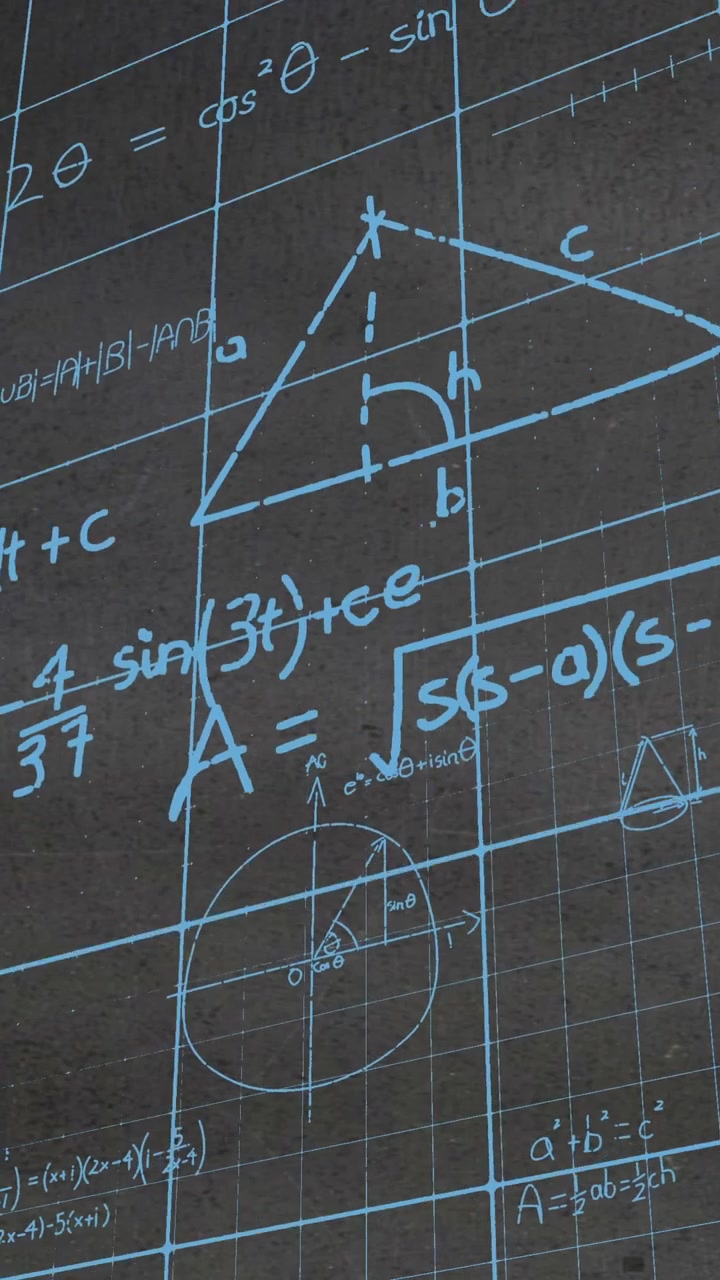 2θ = cos²θ − sin
c
∪B|=|A|+|B|−|A∩B|
a
h
b
t + C
4/37 sin(3t)+ce
A = √s(s−a)(s−
e^iθ=cosθ+isinθ
h
sinθ
θ
1
O
cosθ
) = (x+i)(2x−4)(i−5/2x−4)
2x−4)−5i(x+i)
a²+b²=c²
A=½ab=½ch